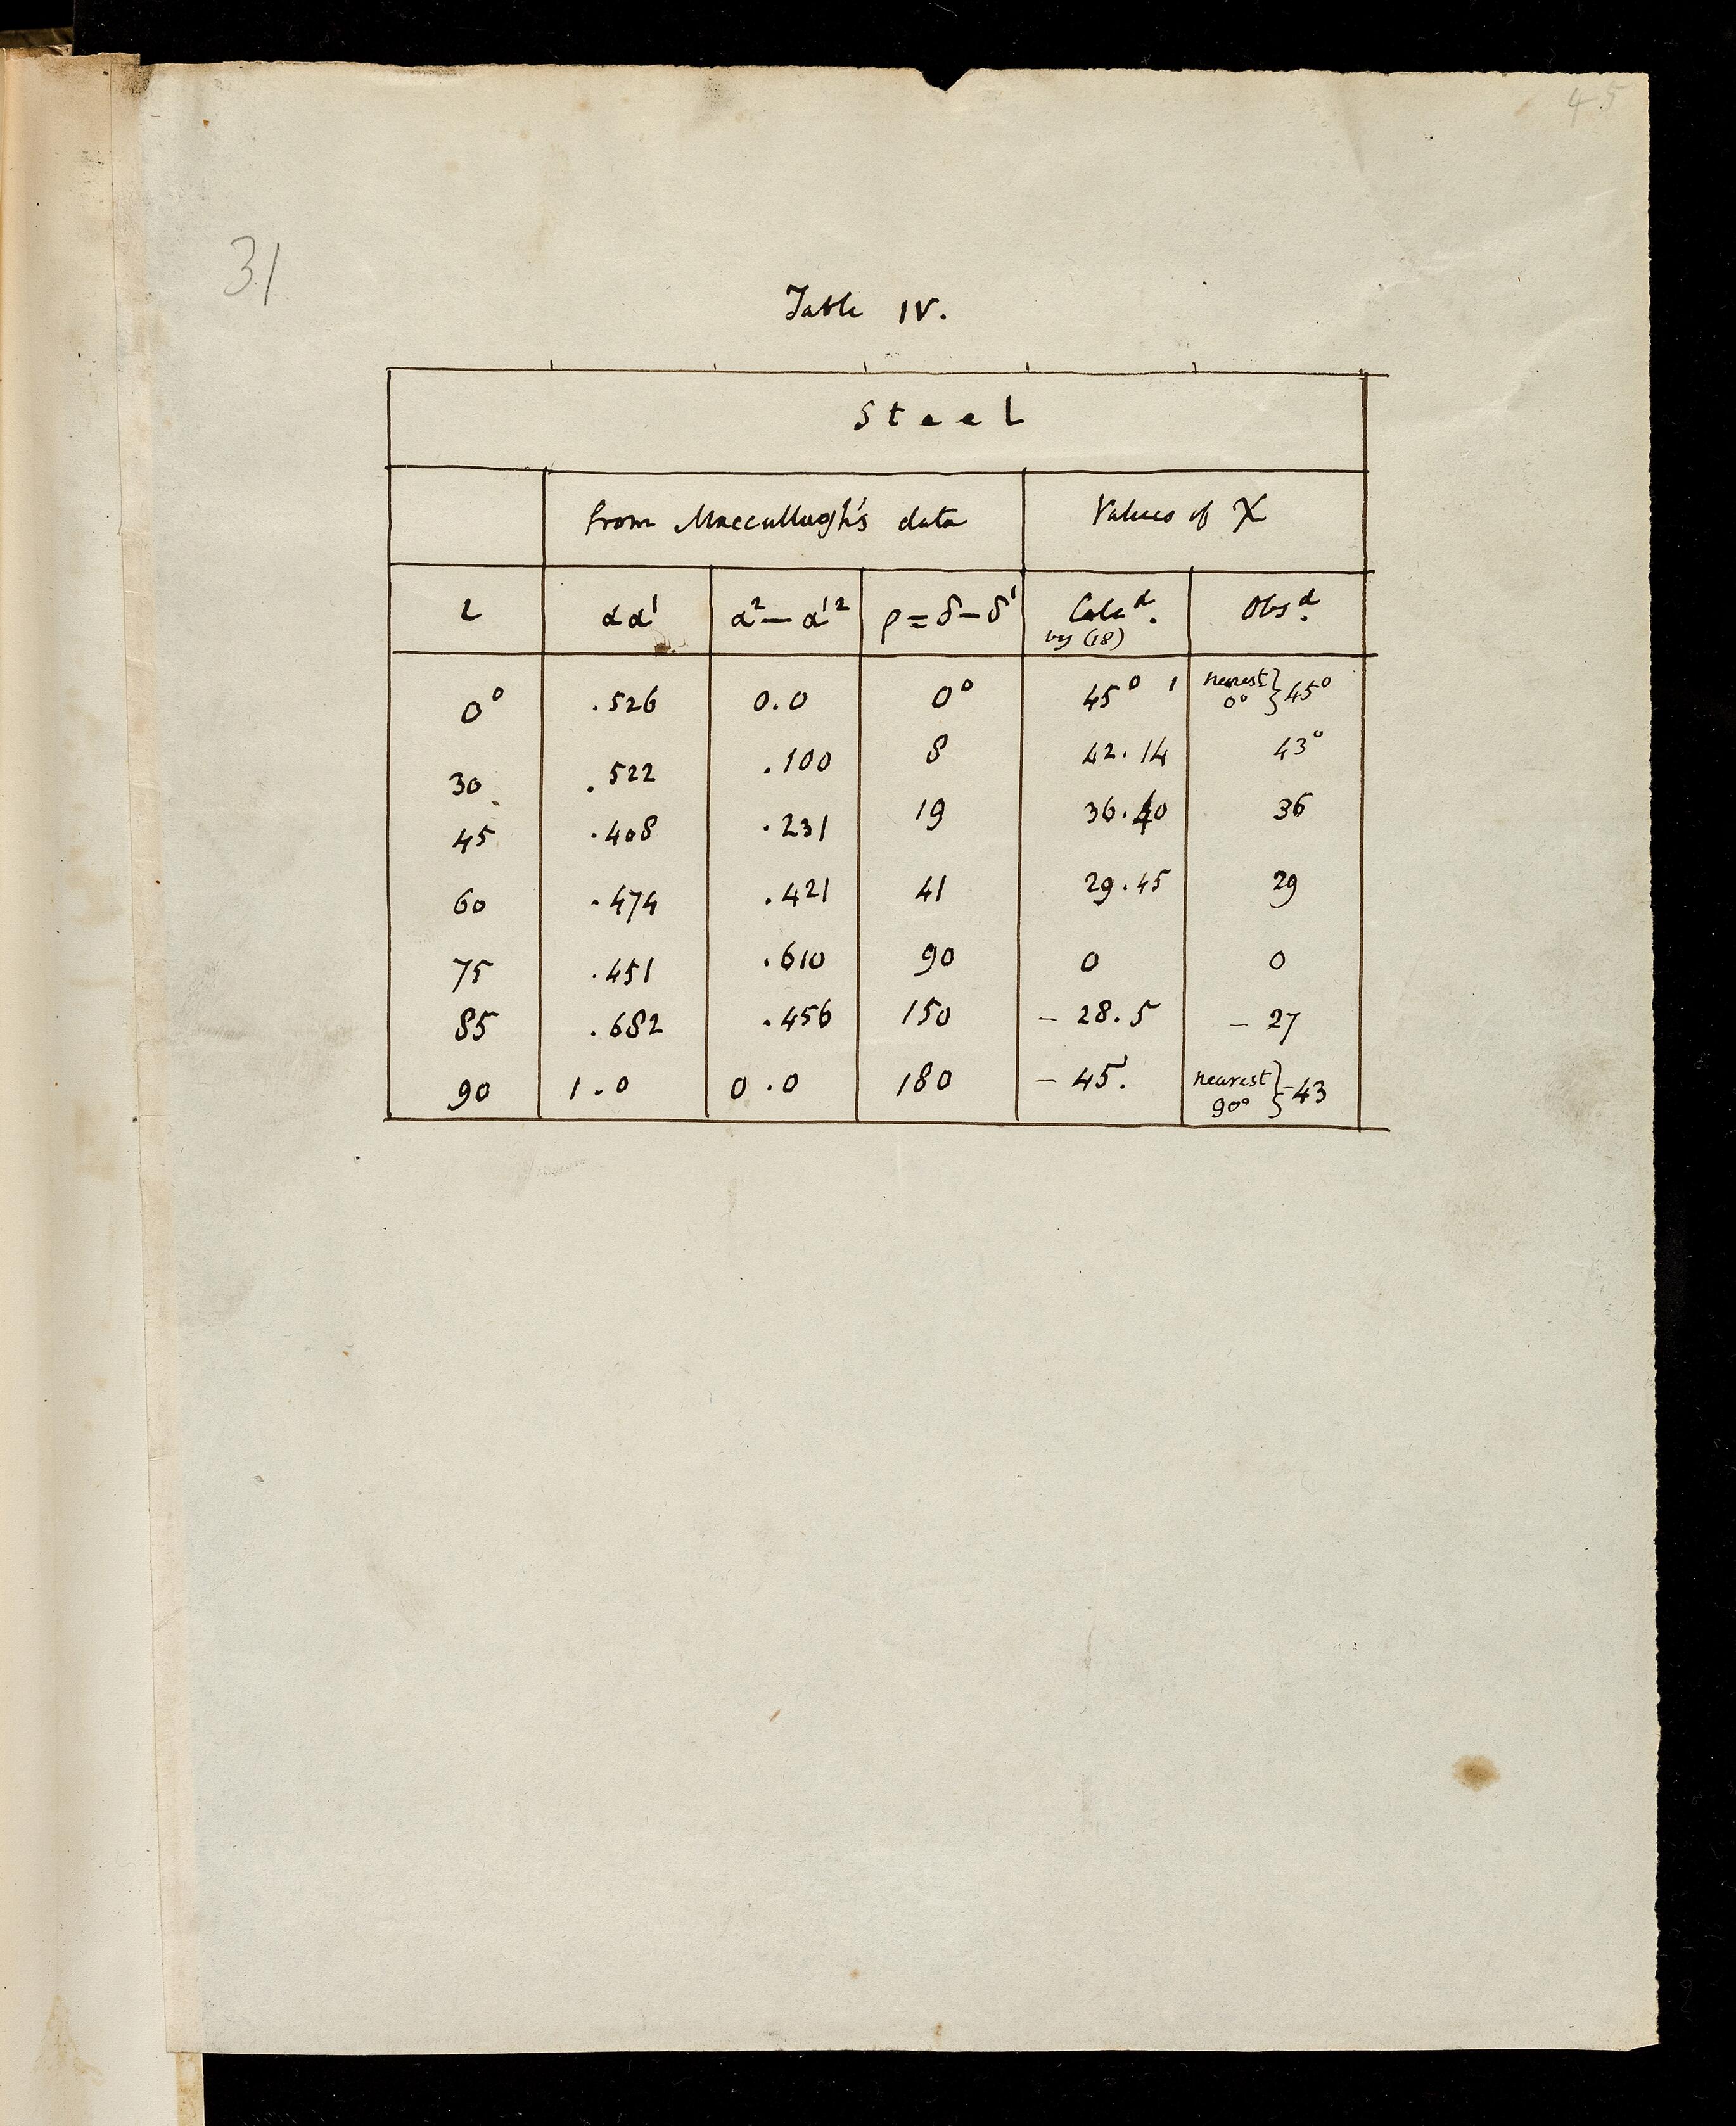 45
31
Table IV.
Steel
from Maccullagh's data Values of χ
ι αα' α²—α'² ρ=δ—δ' Calcᵈ. Obsᵈ.
by (18)
0° .526 0.0 0° 45° ' nearest 0° } 45°
30 .522 .100 8 42.14 43°
45 .408 .231 19 36.40 36
60 .474 .421 41 29.45 29
75 .451 .610 90 0 0
85 .682 .456 150 – 28.5 – 27
90 1.0 0.0 180 – 45. nearest 90° } –43